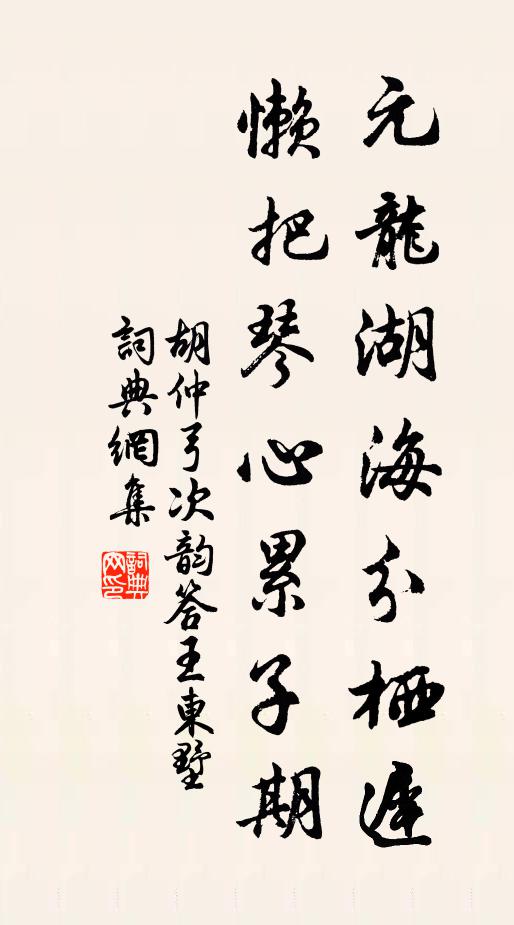 元龍湖海分栖遲
懶把琴心累子期
胡仲弓次韵答王東墅
詞典網集
詞典网印